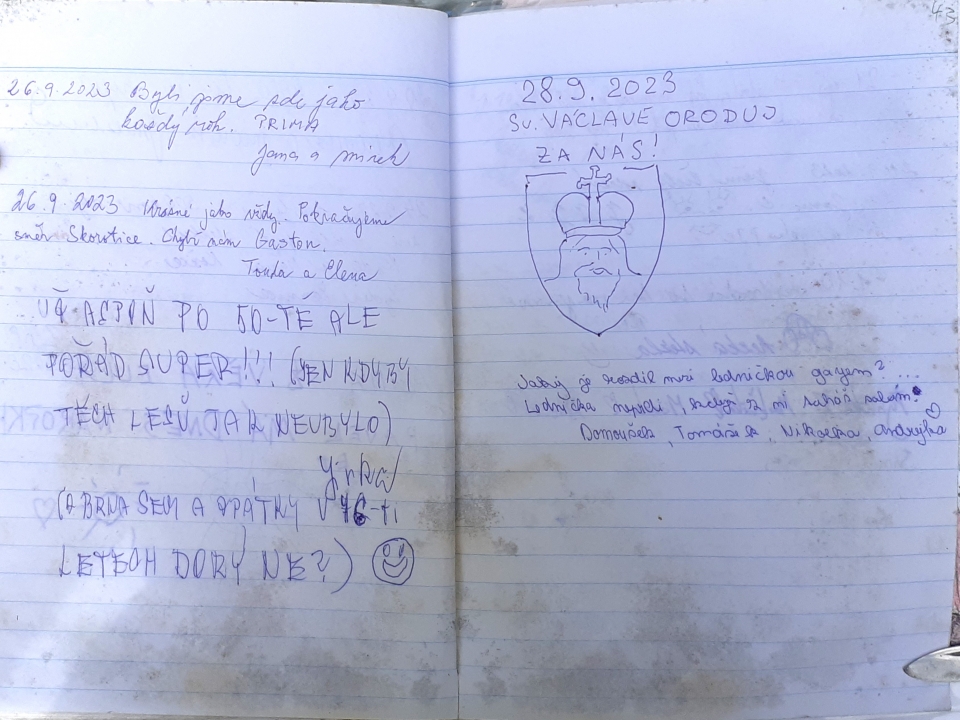 26.9.2023 Byli jsme zde jako
každý rok. PRIMA
Jana a Mirek
26.9.2023 Krásné jako vždy. Pokračujeme
směr Skorotice. Chybí nám Gaston.
Tonda a Elena
UŽ ASPOŇ PO 50-TÉ ALE
POŘÁD SUPER!!! (JEN KDYBY
TĚCH LESŮ TAK NEUBYLO)
Jirka
(Z BRNA SEM A ZPÁTKY V 76-TI
LETECH DOBRÝ NE?)
43
28.9.2023
SV. VÁCLAVE ORODUJ
ZA NÁS!
Jaký je rozdíl mezi ledničkou gayem? ...
Lednička neprdí, když
Domoušek, Tomášek, Nikolka, Andrejka